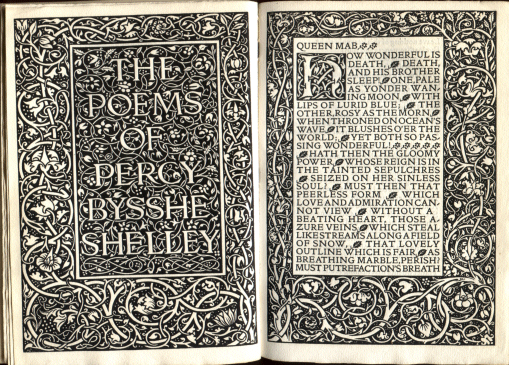 THE
POEMS
OF
PERCY
BYSSHE
SHELLEY
QUEEN MAB
HOW WONDERFUL IS
DEATH, DEATH,
AND HIS BROTHER
SLEEP! ONE, PALE
AS YONDER WAN-
ING MOON, WITH
LIPS OF LURID BLUE; THE
OTHER, ROSY AS THE MORN
WHEN THRONED ON OCEAN'S
WAVE, IT BLUSHES OVER THE
WORLD: YET BOTH SO PAS-
SING WONDERFUL!
HATH THEN THE GLOOMY
POWER, WHOSE REIGN IS IN
THE TAINTED SEPULCHRES
SEIZED ON HER SINLESS
SOUL? MUST THEN THAT
PEERLESS FORM WHICH
LOVE AND ADMIRATION CAN-
NOT VIEW WITHOUT A
BEATING HEART, THOSE A-
ZURE VEINS, WHICH STEAL
LIKE STREAMS ALONG A FIELD
OF SNOW, THAT LOVELY
OUTLINE WHICH IS FAIR, AS
BREATHING MARBLE, PERISH?
MUST PUTREFACTION'S BREATH